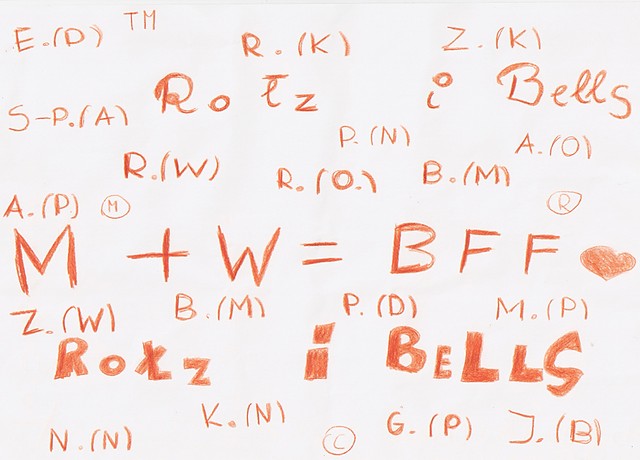 E.(D) TM R.(K) Z.(K)
Rotz i Bells
S-P.(A) P.(N) A.(O)
R.(W) R.(O.) B.(M)
A.(P) M R
M + W = BFF
Z.(W) B.(M) P.(D) M.(P)
Rotz i BELLS
K.(N) G.(P) J.(B)
N.(N) C